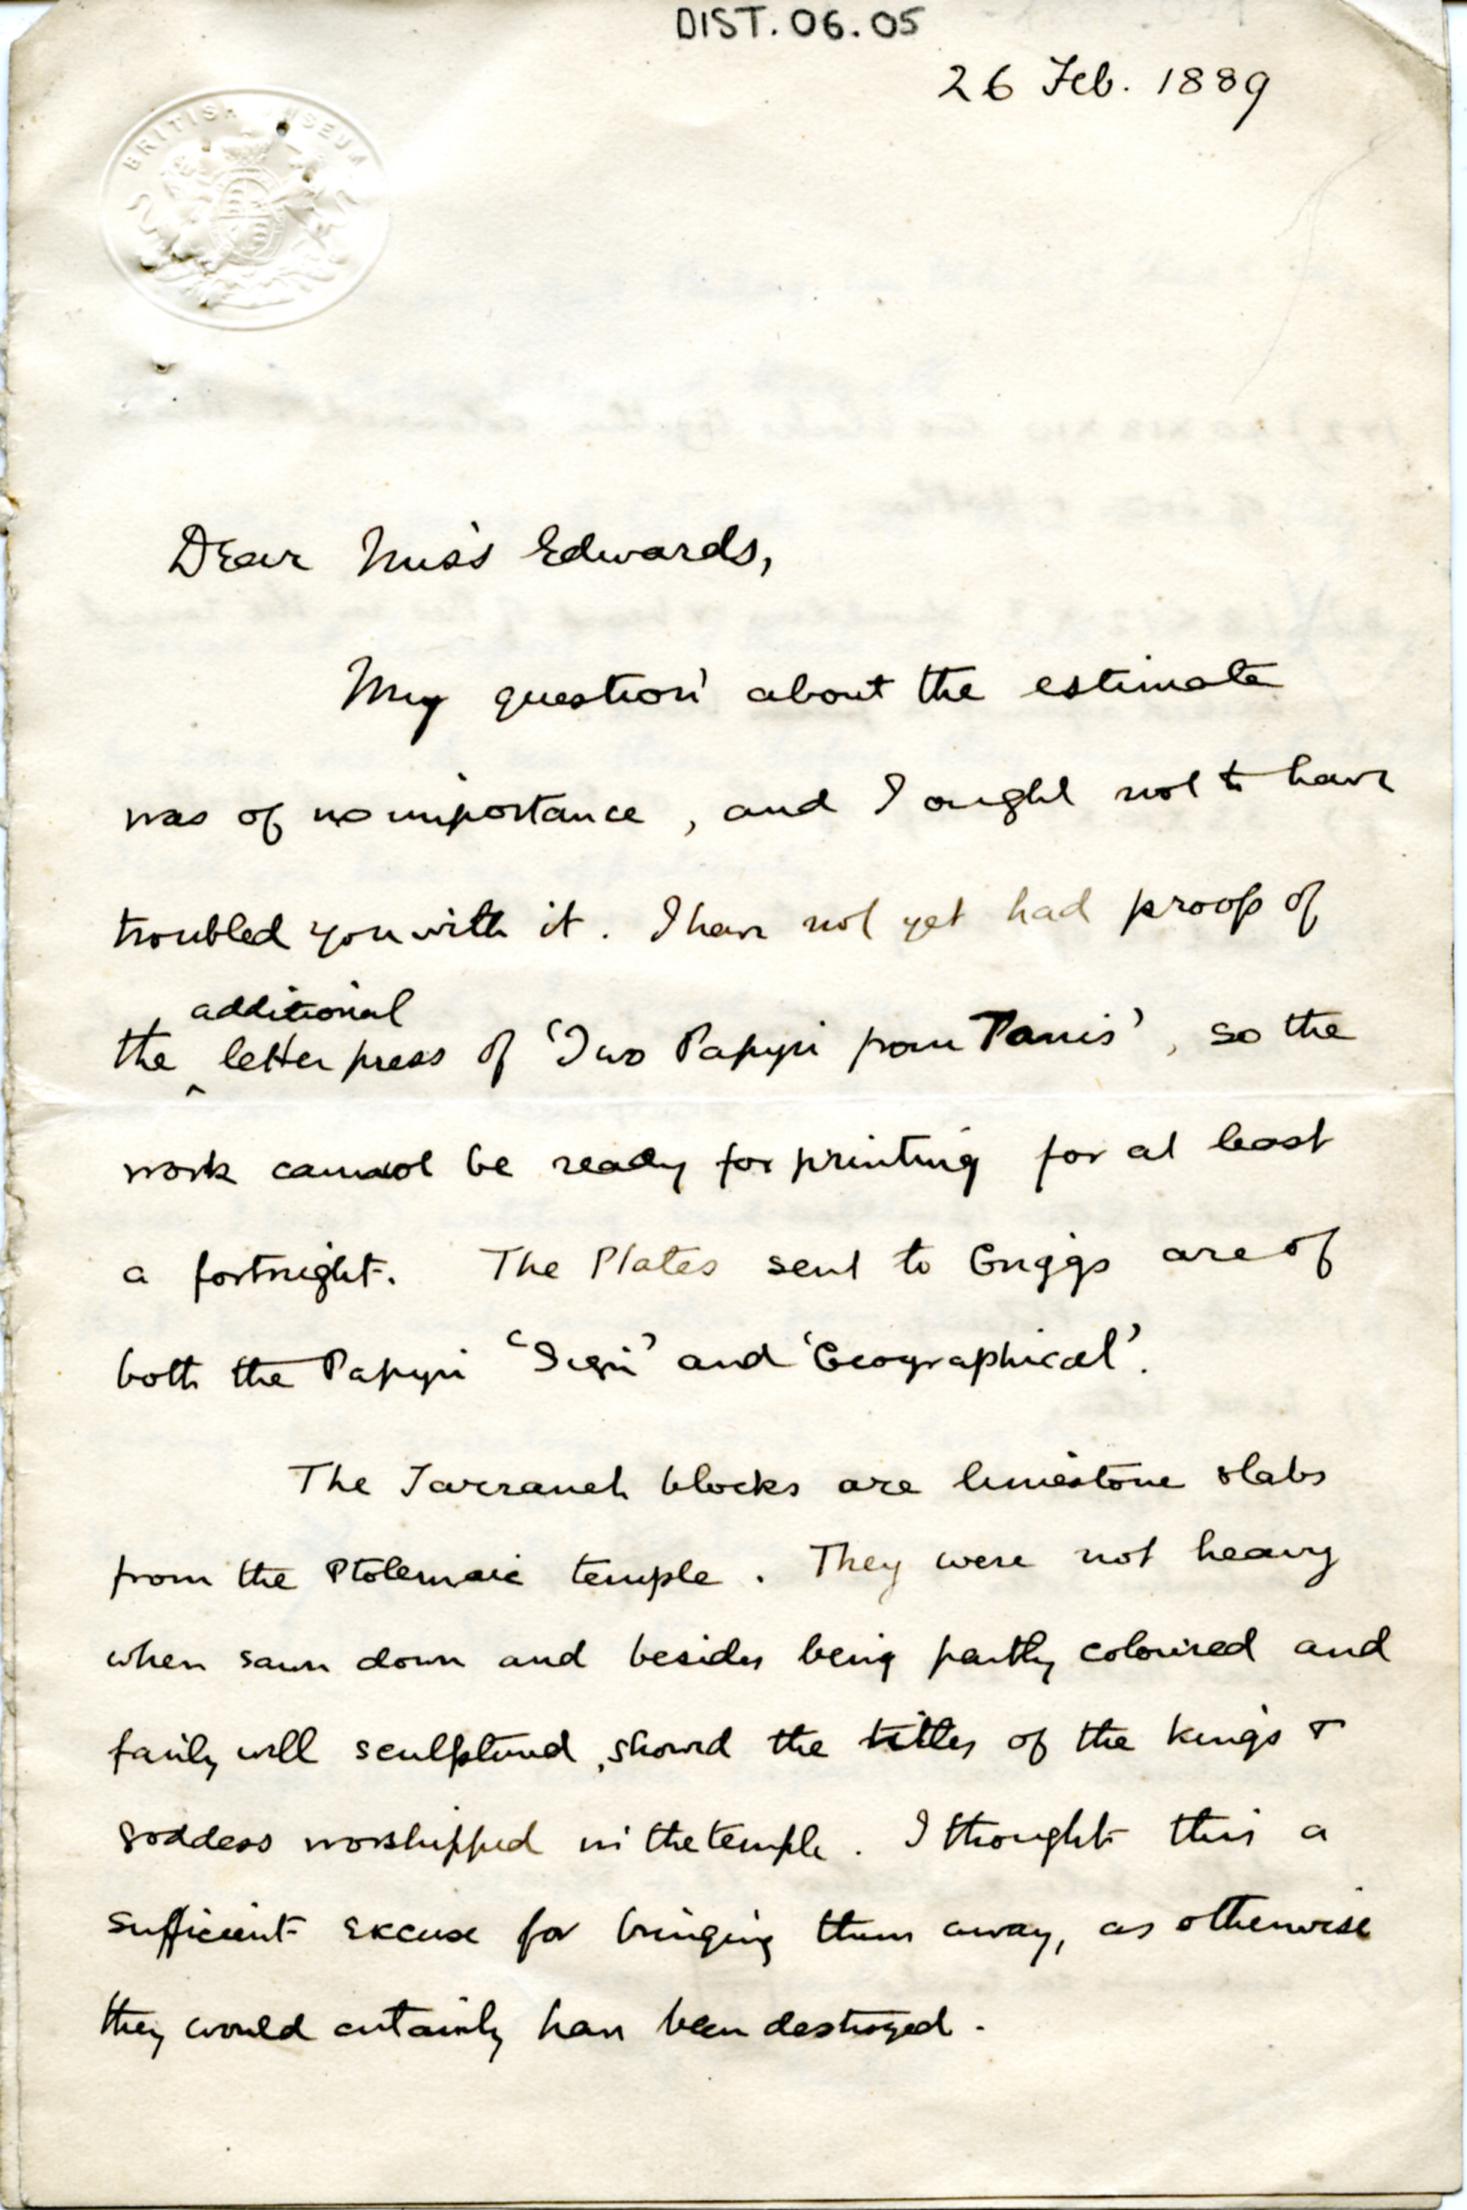 DIST. 06. 05
26 Feb. 1889
BRITISH MUSEUM
Dear Miss Edwards,
My question about the estimate
was of no importance, and I ought not to have
troubled you with it. I have not yet had proof of
additional
the ^ letterpress of 'Two Papyri from Tanis', so the
work cannot be ready for printing for at least
a fortnight. The Plates sent to Griggs are of
both the Papyri 'Sign' and 'Geographical'.
The Tarraneh blocks are limestone slabs
from the Ptolemaic temple. They were not heavy
when sawn down and besides being partly coloured and
fairly well sculptured, showed the titles of the kings &
goddess worshipped in the temple. I thought this a
sufficient excuse for bringing them away, as otherwise
they would certainly have been destroyed.